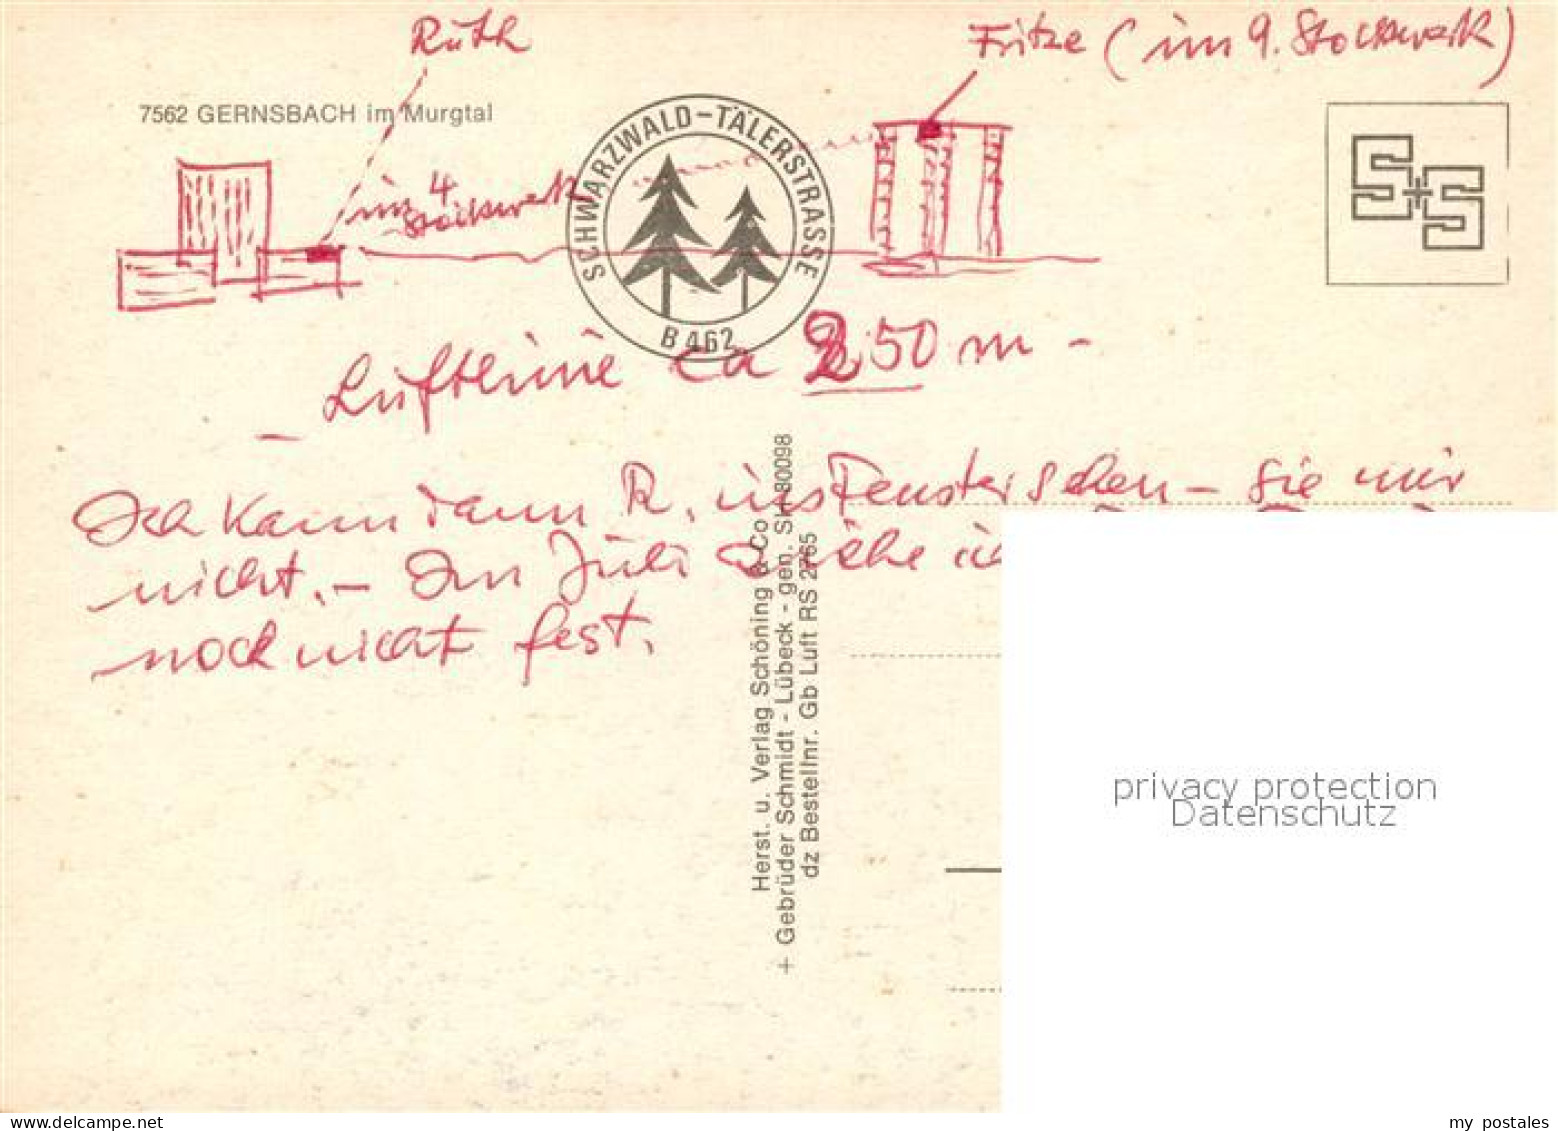 Ruth
Fritze (im 9. Stockwerk)
7562 GERNSBACH im Murgtal
SCHWARZWALD-TÄLERSTRASSE
B 462
S+S
im 4
Stockwerk
- Luftlinie ca 250 m -
Ich kann dann R. ins Fenster sehen - sie mir
nicht. - Im Juli
noch nicht fest.
Herst. u. Verlag Schöning & Co
+ Gebrüder Schmidt - Lübeck - gen. SH 80098
dz Bestellnr. Gb Luft RS 2765
privacy protection
Datenschutz
my postales